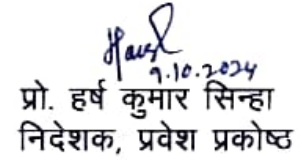 9.10.2024
प्रो. हर्ष कुमार सिन्हा
निदेशक, प्रवेश प्रकोष्ठ